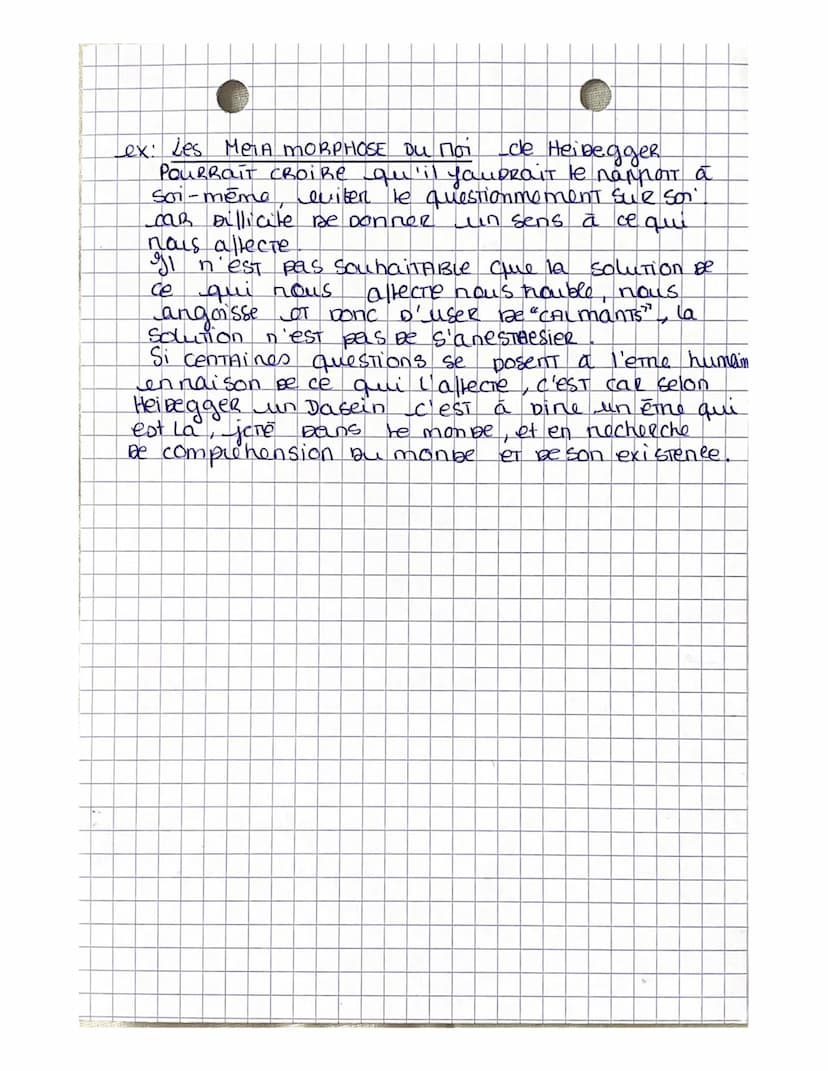 ex: Les MetAMORPHOSE DU Moi de Heidegger
POURRAIT CROIRE qu'il faudrait le rapport à
soi-même, eviter le questionnement sur soi
car difficile de donner un sens à ce qui
nous affecte.
Il n'est pas souhaitable que la solution de
ce qui nous affecte nous trouble, nous
angoisse et donc d'user de "calmants", la
solution n'est pas de s'anesthesier.
Si centaines questions se posent à l'être humain
en raison de ce qui l'affecte, c'est car selon
Heidegger un Dasein c'est à dire un être qui
est là, jeté dans le monde, et en recherche
de compréhension du monde et de son existence.